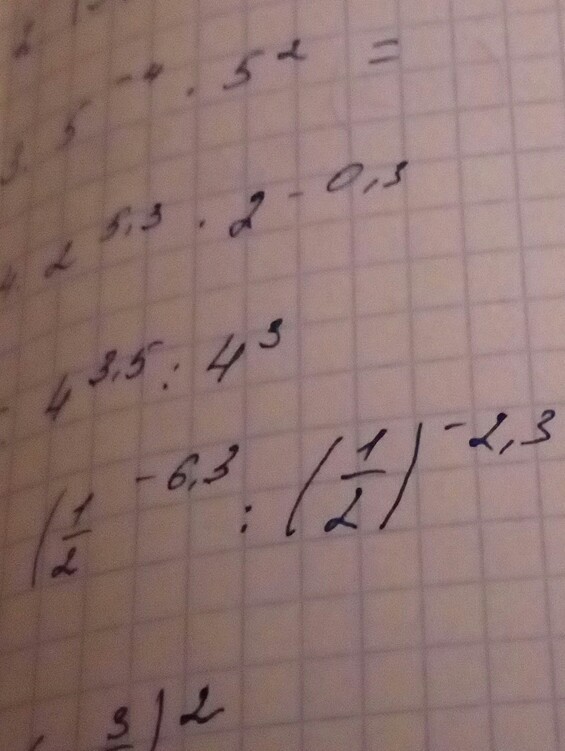 3. 5⁻⁴ · 5² =
4. 2^5,3 · 2^-0,3
4^3,5 : 4³
(1/2^-6,3 : (1/2)^-2,3
3)²